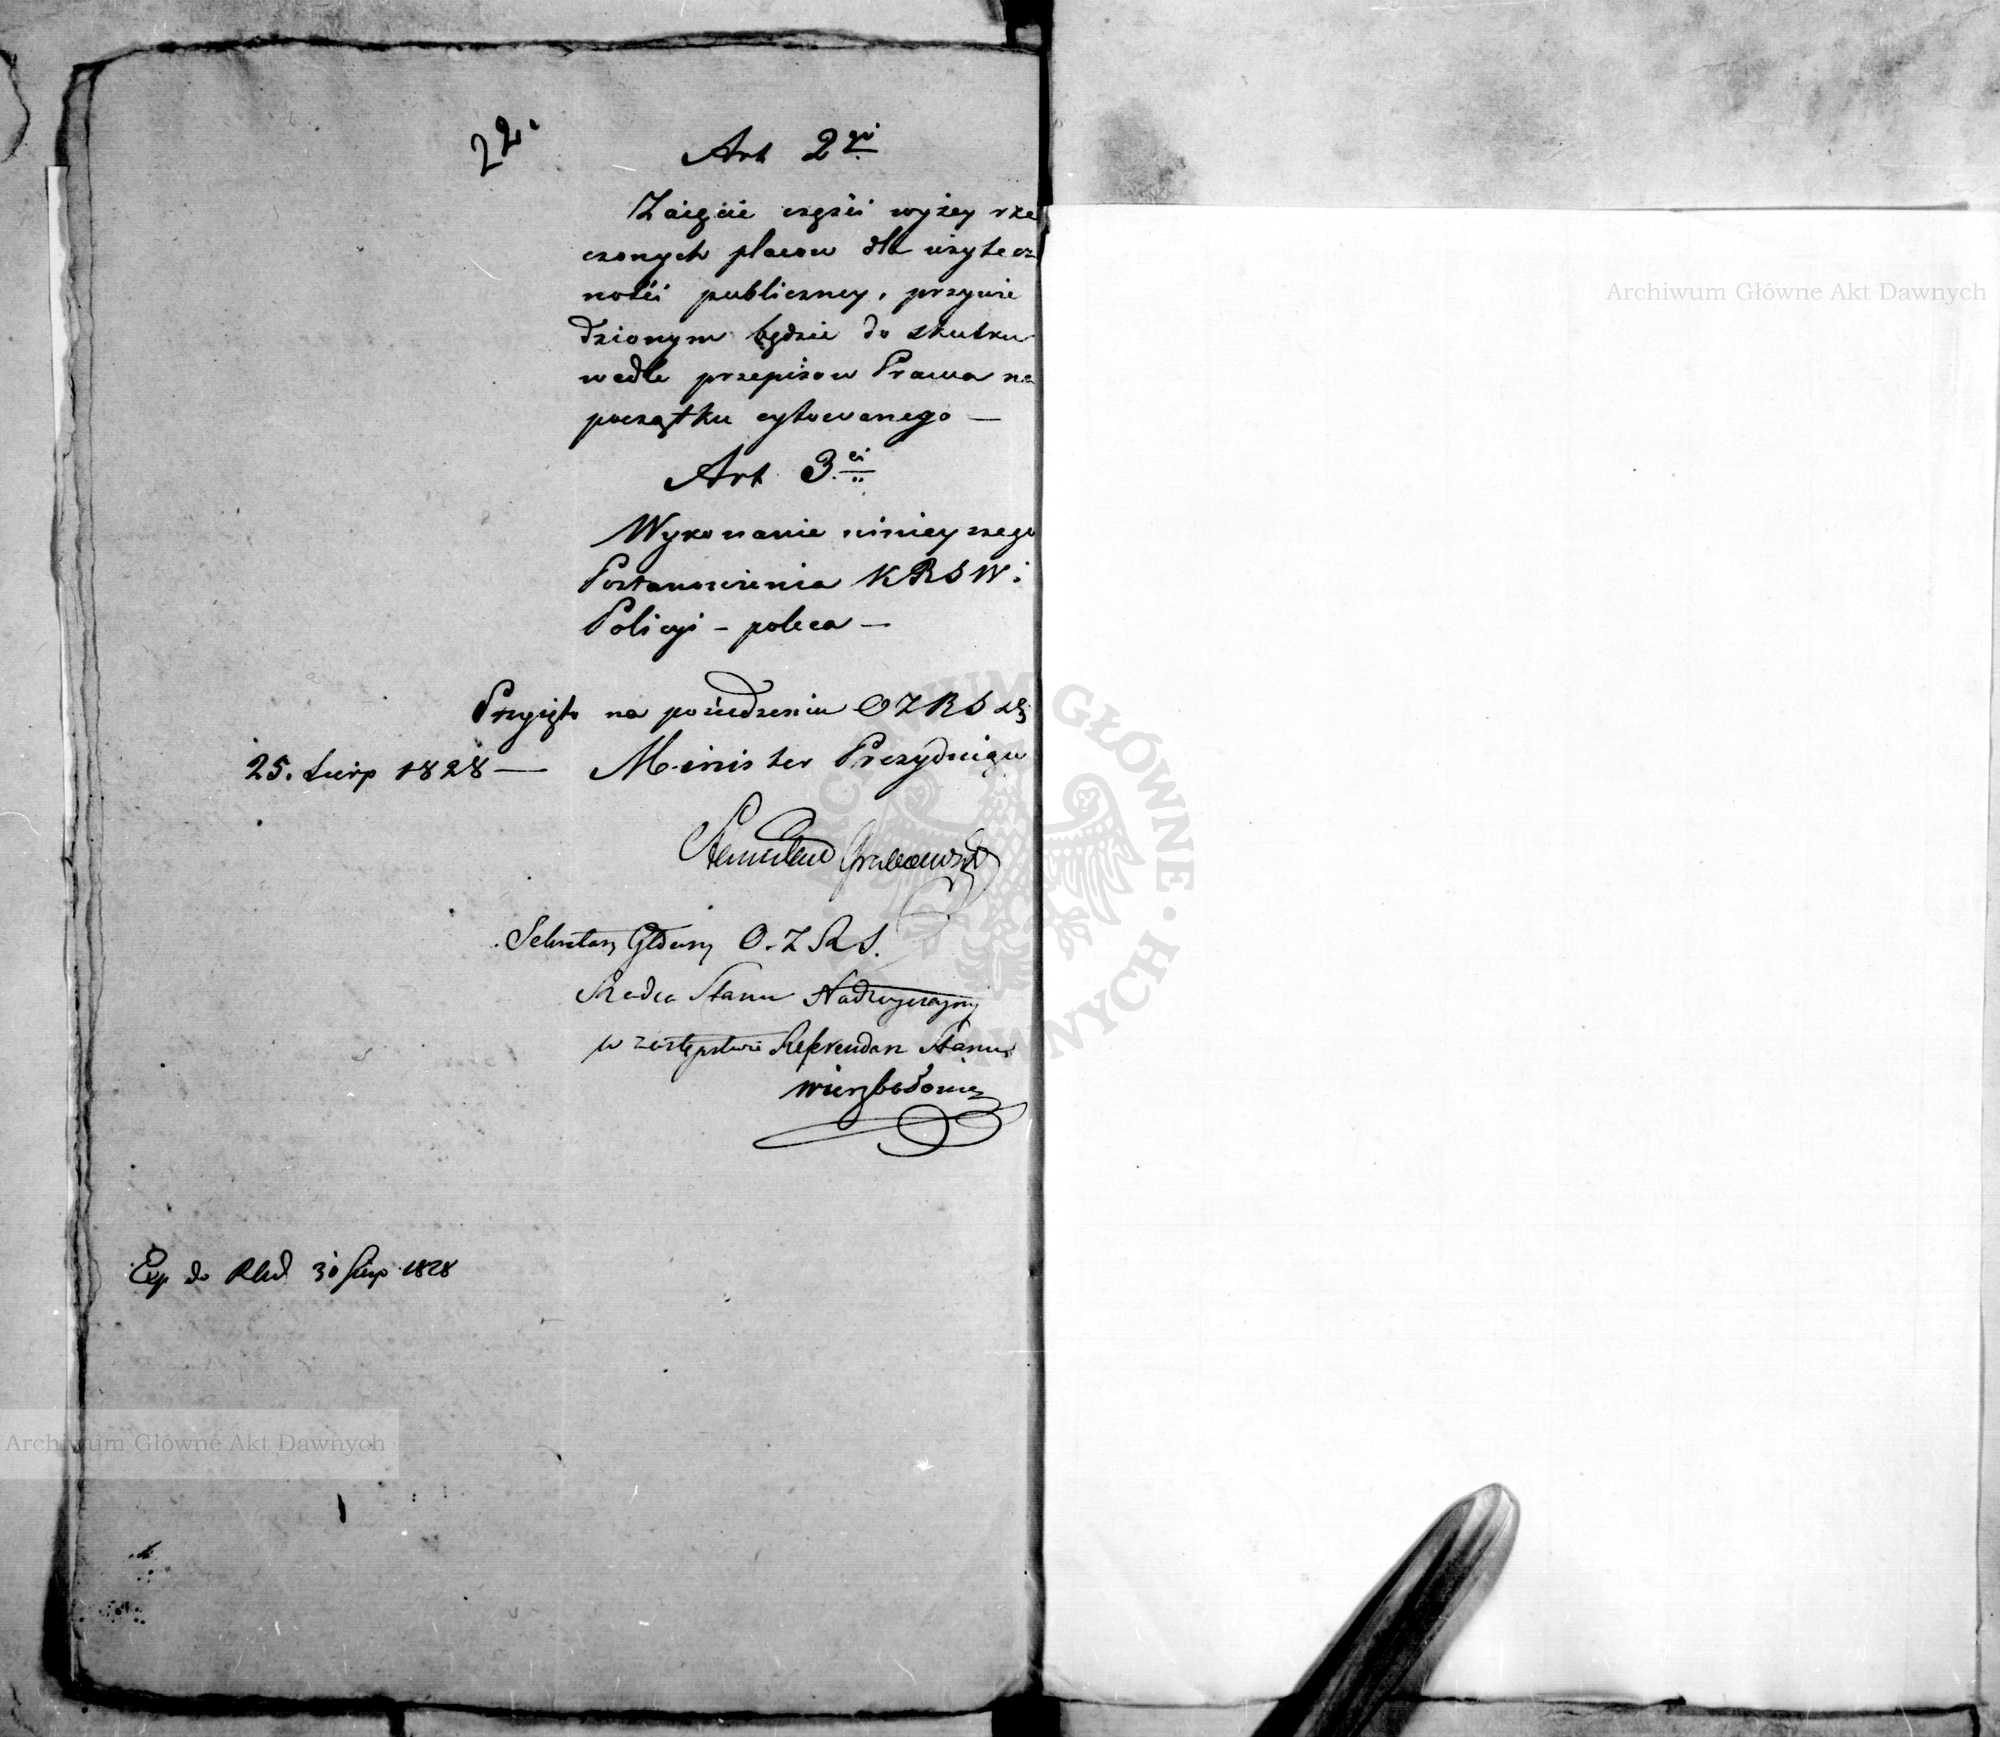 22.
Art 2gi
Zaięcie części wyżey rze
czonych placow dla użytecz
ności publiczney, przywie
dzionym będzie do skutku
wedle przepisow Prawa na
początku cytowanego —
Art 3ci
Wykonanie ninieyszego
Postanowienia KRSW i
Policyi — poleca —
Przyięto na posiedzeniu OZRS
25. Sierp 1828 — Minister Prezyduiący
Stanisław Grabowski
Sekretarz Główny O.Z.R.S.
Radca Stanu Nadzwyczajny
w zastępstwie Referendarz Stanu
Wierzbołowicz
Exp do 30 Sierp 1828
Archiwum Główne Akt Dawnych
Archiwum Główne Akt Dawnych
ARCHIWUM GŁÓWNE AKT DAWNYCH